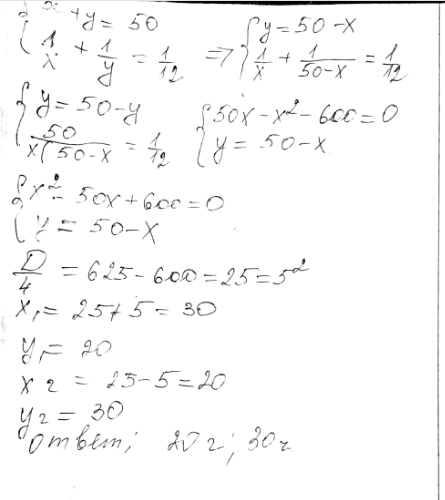 { x + y = 50
{ 1/x + 1/y = 1/12 ⇒ { y = 50 - x
{ 1/x + 1/(50-x) = 1/12
{ y = 50 - y
{ 50/(x(50-x) = 1/12
{ 50x - x² - 600 = 0
{ y = 50 - x
{ x² - 50x + 600 = 0
{ y = 50 - x
D/4 = 625 - 600 = 25 = 5²
x₁ = 25 + 5 = 30
y₁ = 20
x₂ = 25 - 5 = 20
y₂ = 30
Ответ: 20 г; 30 г